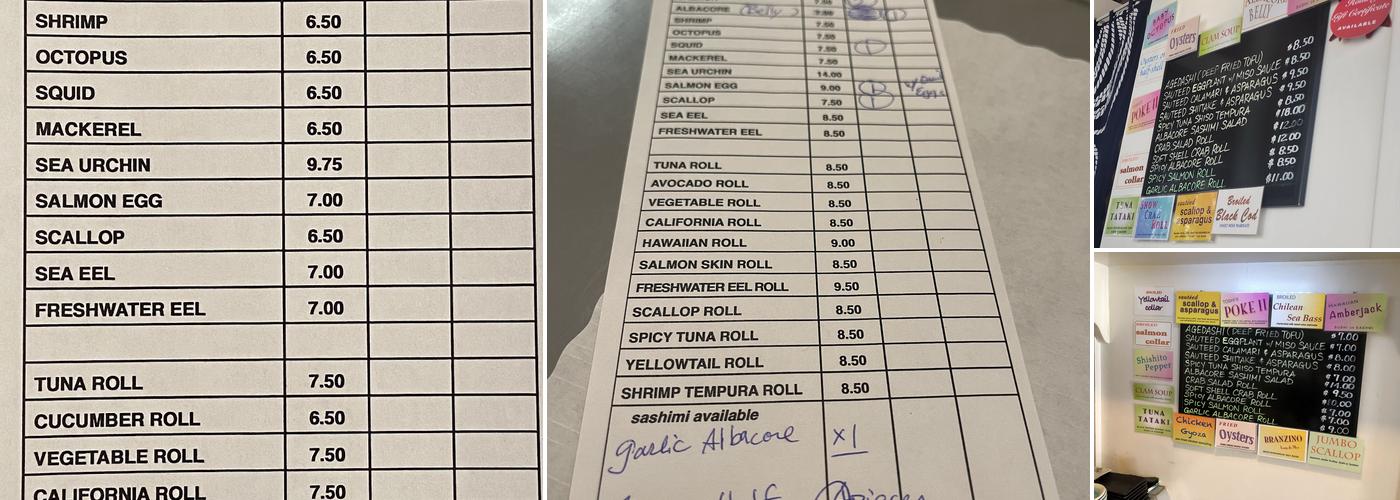 SHRIMP 6.50
OCTOPUS 6.50
SQUID 6.50
MACKEREL 6.50
SEA URCHIN 9.75
SALMON EGG 7.00
SCALLOP 6.50
SEA EEL 7.00
FRESHWATER EEL 7.00
TUNA ROLL 7.50
CUCUMBER ROLL 6.50
VEGETABLE ROLL 7.50
CALIFORNIA ROLL 7.50
ALBACORE (Belly)
SHRIMP 7.50
OCTOPUS 7.50
SQUID 7.50
MACKEREL 7.50
SEA URCHIN 14.00
SALMON EGG 9.00
Eggs
SCALLOP 7.50
SEA EEL 8.50
FRESHWATER EEL 8.50
TUNA ROLL 8.50
AVOCADO ROLL 8.50
VEGETABLE ROLL 8.50
CALIFORNIA ROLL 8.50
HAWAIIAN ROLL 9.00
SALMON SKIN ROLL 8.50
FRESHWATER EEL ROLL 9.50
SCALLOP ROLL 8.50
SPICY TUNA ROLL 8.50
YELLOWTAIL ROLL 8.50
SHRIMP TEMPURA ROLL 8.50
sashimi available
Garlic Albacore x1
BABY OCTOPUS
FRIED Oysters
CLAM SOUP
ALBACORE BELLY
Gift Certificate
AVAILABLE
Oysters on half-shell
POKE II
salmon collar
TUNA TATAKI
SNOW CRAB ROLL
sautéed scallop & asparagus
Broiled Black Cod
AGEDASHI (DEEP FRIED TOFU) $8.50
SAUTEED EGGPLANT w/ MISO SAUCE $8.50
SAUTEED CALAMARI & ASPARAGUS $9.50
SAUTEED SHIITAKE & ASPARAGUS $9.50
SPICY TUNA SHISO TEMPURA $8.50
ALBACORE SASHIMI SALAD $18.00
CRAB SALAD ROLL $12.00
SOFT SHELL CRAB ROLL $12.00
SPICY ALBACORE ROLL $8.50
SPICY SALMON ROLL $8.50
GARLIC ALBACORE ROLL $11.00
BROILED Yellowtail collar
sautéed scallop & asparagus
TOSHI'S POKE II
BROILED Chilean Sea Bass
HAWAIIAN Amberjack
BROILED salmon collar
Shishito Pepper
CLAM SOUP
TUNA TATAKI
Chicken Gyoza
FRIED Oysters
BRANZINO
JUMBO SCALLOP
AGEDASHI (DEEP FRIED TOFU) $7.00
SAUTEED EGGPLANT w/ MISO SAUCE $7.00
SAUTEED CALAMARI & ASPARAGUS $8.00
SAUTEED SHIITAKE & ASPARAGUS $8.00
SPICY TUNA SHISO TEMPURA $7.00
ALBACORE SASHIMI SALAD $14.00
CRAB SALAD ROLL $9.50
SOFT SHELL CRAB ROLL $10.00
SPICY ALBACORE ROLL $7.00
SPICY SALMON ROLL $7.00
GARLIC ALBACORE ROLL $9.00